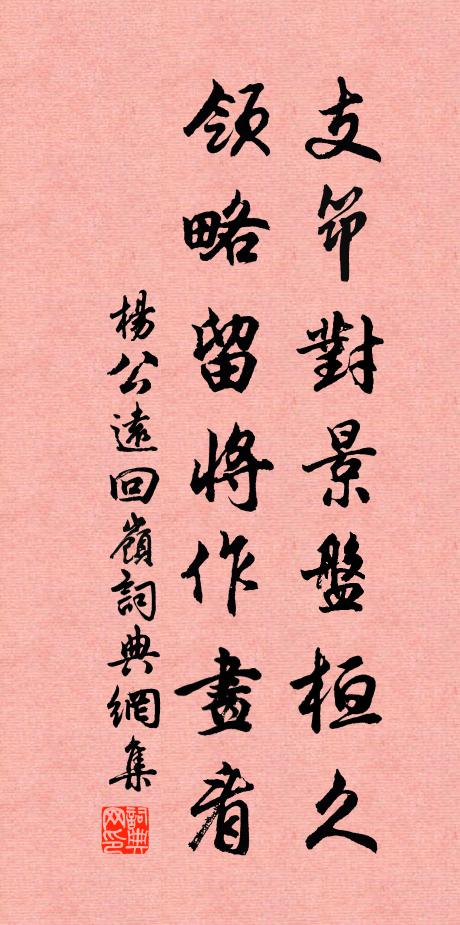 支笻對景盤桓久
領略留將作畫看
楊公遠回嶺詞典網集
詞典网印